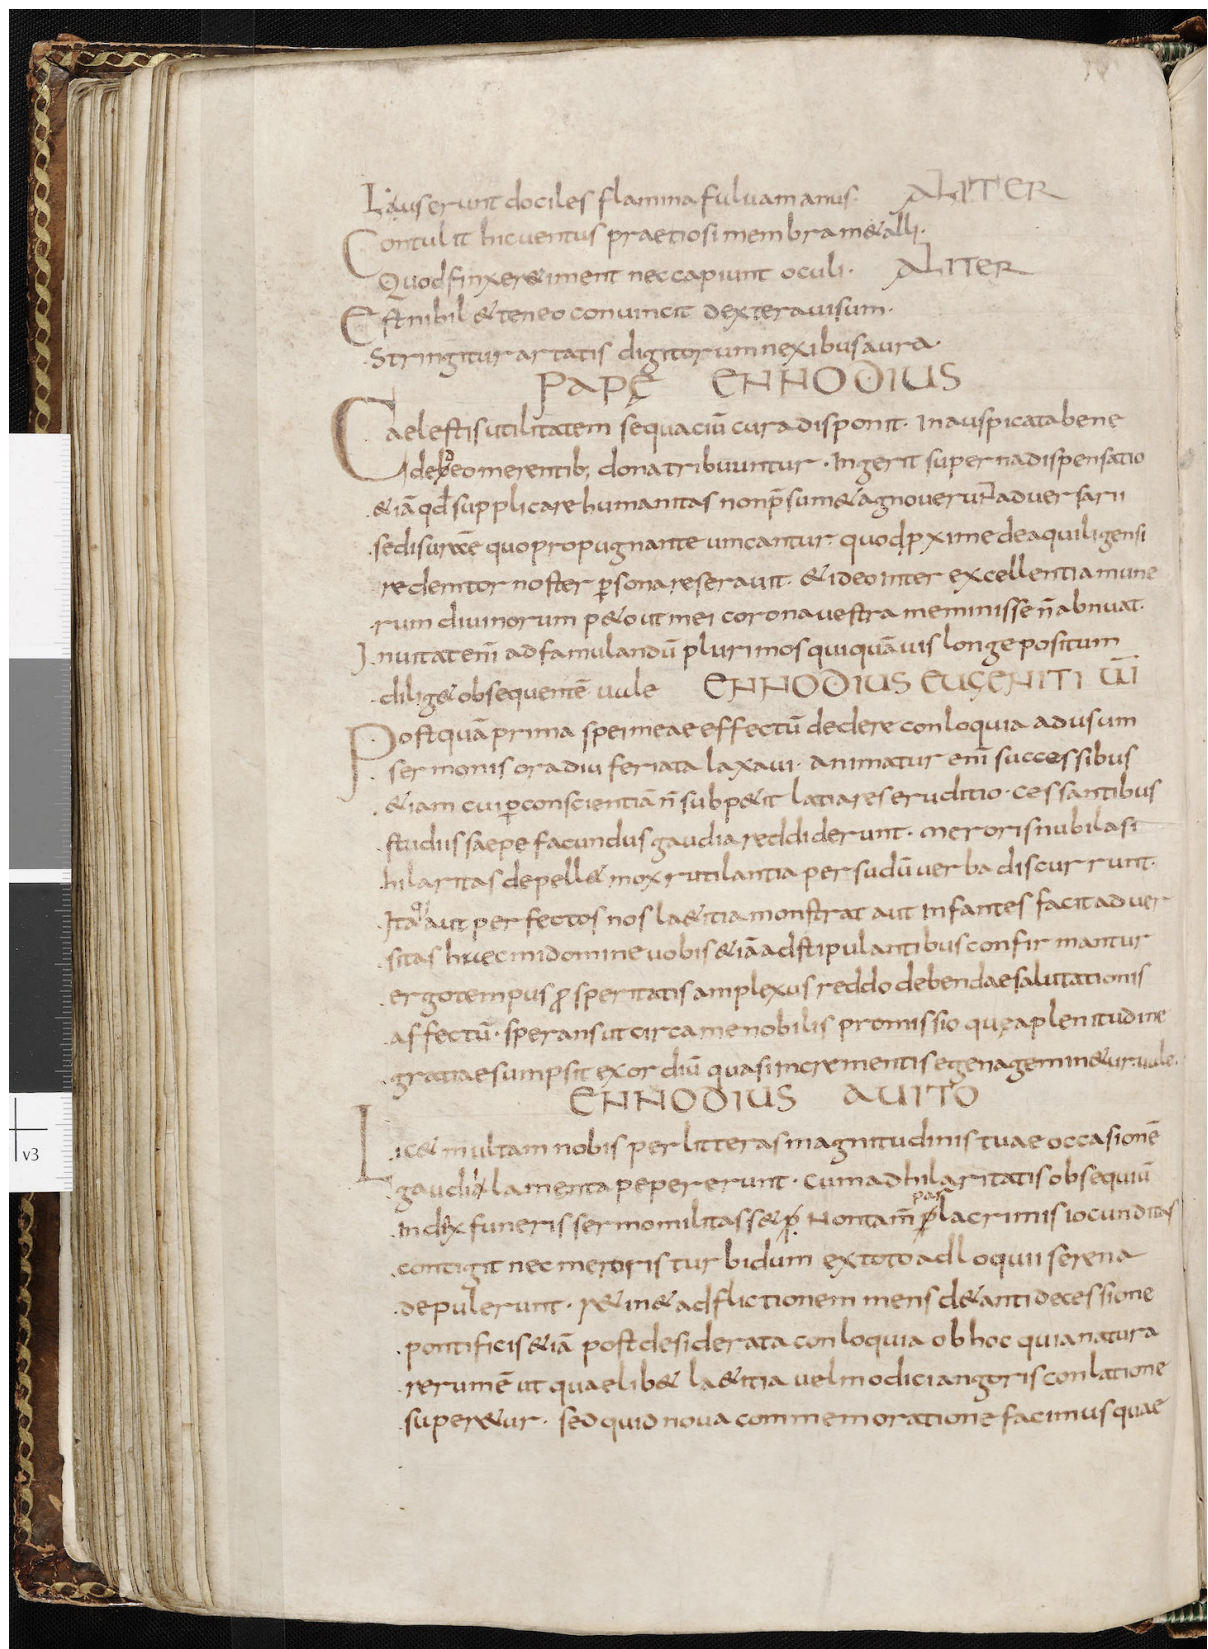 Lauserunt dociles flamina fuluam anus. ALITER
Contulit hic uentus praetiosi membra m&alli.
Quod finxer& iment nec capiunt oculi. ALITER
Est nihil & teneo conuincit dextera uisum.
Stringitur artatis digitorum nexibus aura.
PAPĘ ENNODIUS
Caelestis utilitatem sequaciū cura disponit. Inauspicata bene
de eo merentib; dona tribuuntur. Ingerit superna dispensatio
&iā qđ supplicare humanitas non p̄sum& agnouerunt aduersarii
sedis ur̄ae quo propugnante uincantur. quod ꝓxime de aquiligensi
redemtor noster ꝑsona reserauit. & ideo inter excellentia mune
rum diuinorum p&o ut mei corona uestra meminisse n̄ abnuat.
Inuitat eni̅ ad famulandū plurimos qui quāuis longe positum
dilig& obsequentē uale ENNODIUS EUGENITI UI̅
Postquā prima spei meae effectū dedere conloquia ad usum
sermonis ora diu feriata laxaui. animatur eni̅ successibus
&iam cui ꝑ conscientiā n̄ subp&it latiaris eruditio. Cessantibus
studiis saepe facundus gaudia reddiderunt. meroris nubila si
hilaritas depell& mox rutilantia per sudū uerba discurrunt.
Ita aut perfectos nos la&itia monstrat aut infantes facit aduer
sitas haec mi domine uobis &iā adstipulantibus confirmantur
ergo tempus ꝓsperitatis amplexus reddo debendae salutationis
affectū. sperans ut circa me nobilis promissio quę a plenitudine
gratiae sumpsit exordiū quasi incrementis egena gemin&ur. uale.
ENNODIUS AUITO
Lic& multam nobis per litteras magnitudinis tuae occasionē
gaudii lamenta pepererunt. Cum ad hilaritatis obsequiū
index funeris sermo militass& Non tam̄ par lacrimis iocunditas
contigit nec meroris turbidum ex toto adloquii serena
depulerunt. r&in& adflictionem mens d& anti decessione
pontificis &iā post desiderata conloquia ob hoc quia natura
rerum ē ut quaelib& la&itia uel modici angoris conlatione
super&ur. sed quid noua commemoratione facimus quae